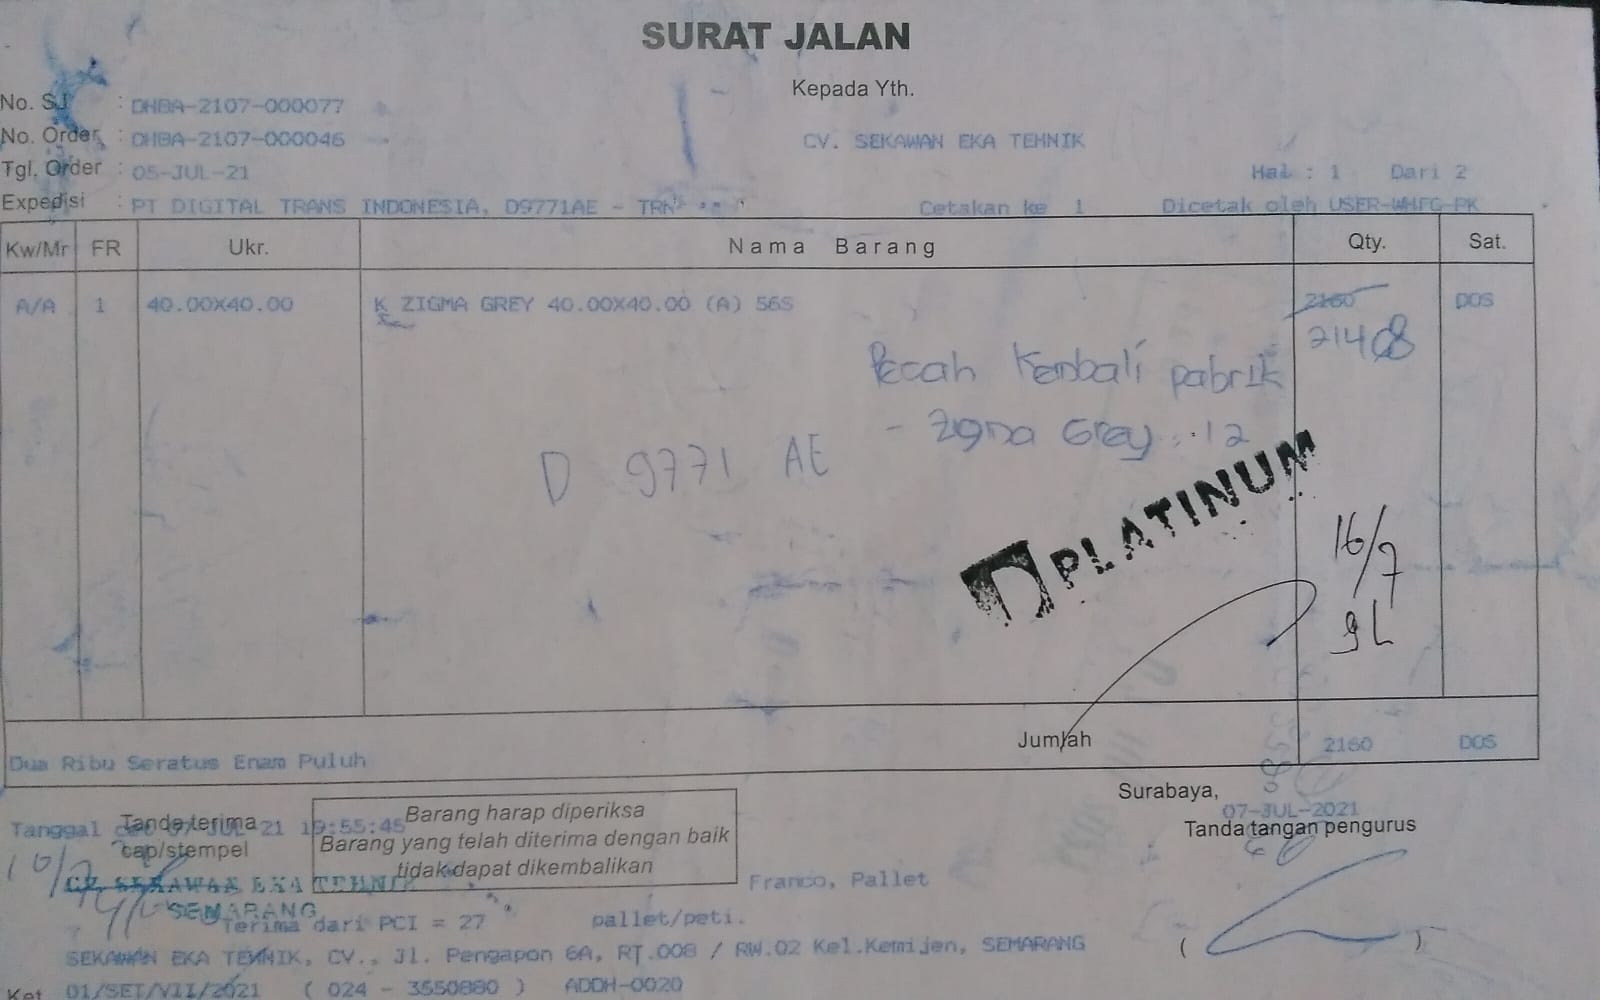 SURAT JALAN
Kepada Yth.
No. SJ : DHBA-2107-000077
No. Order : DHBA-2107-000046
CV. SEKAWAN EKA TEHNIK
Tgl. Order : 05-JUL-21
Hal : 1 Dari 2
Expedisi : PT DIGITAL TRANS INDONESIA, D9771AE - TRN
Cetakan ke 1 Dicetak oleh USER-WHFG-PK
Kw/Mr FR Ukr. Nama Barang Qty. Sat.
A/A 1 40.00X40.00 K ZIGMA GREY 40.00X40.00 (A) 56S 2160 DOS
2148
Pecah Kembali pabrik
- Zigma Grey : 12
D 9771 AE
PLATINUM
16/7
Jumlah 2160 DOS
Dua Ribu Seratus Enam Puluh
Surabaya,
07-JUL-2021
Tanda tangan pengurus
Tanggal 07-JUL-21 19:55:45
Tanda terima
cap/stempel
Barang harap diperiksa
Barang yang telah diterima dengan baik
tidak dapat dikembalikan
CV. SEKAWAN EKA TEHNIK
SEMARANG
Franco, Pallet
Terima dari PCI = 27 pallet/peti.
SEKAWAN EKA TEHNIK, CV., Jl. Pengapon 6A, RT.008 / RW.02 Kel.Kemijen, SEMARANG
( )
Ket 01/SET/VII/2021 ( 024 - 3550880 ) ADDH-0020